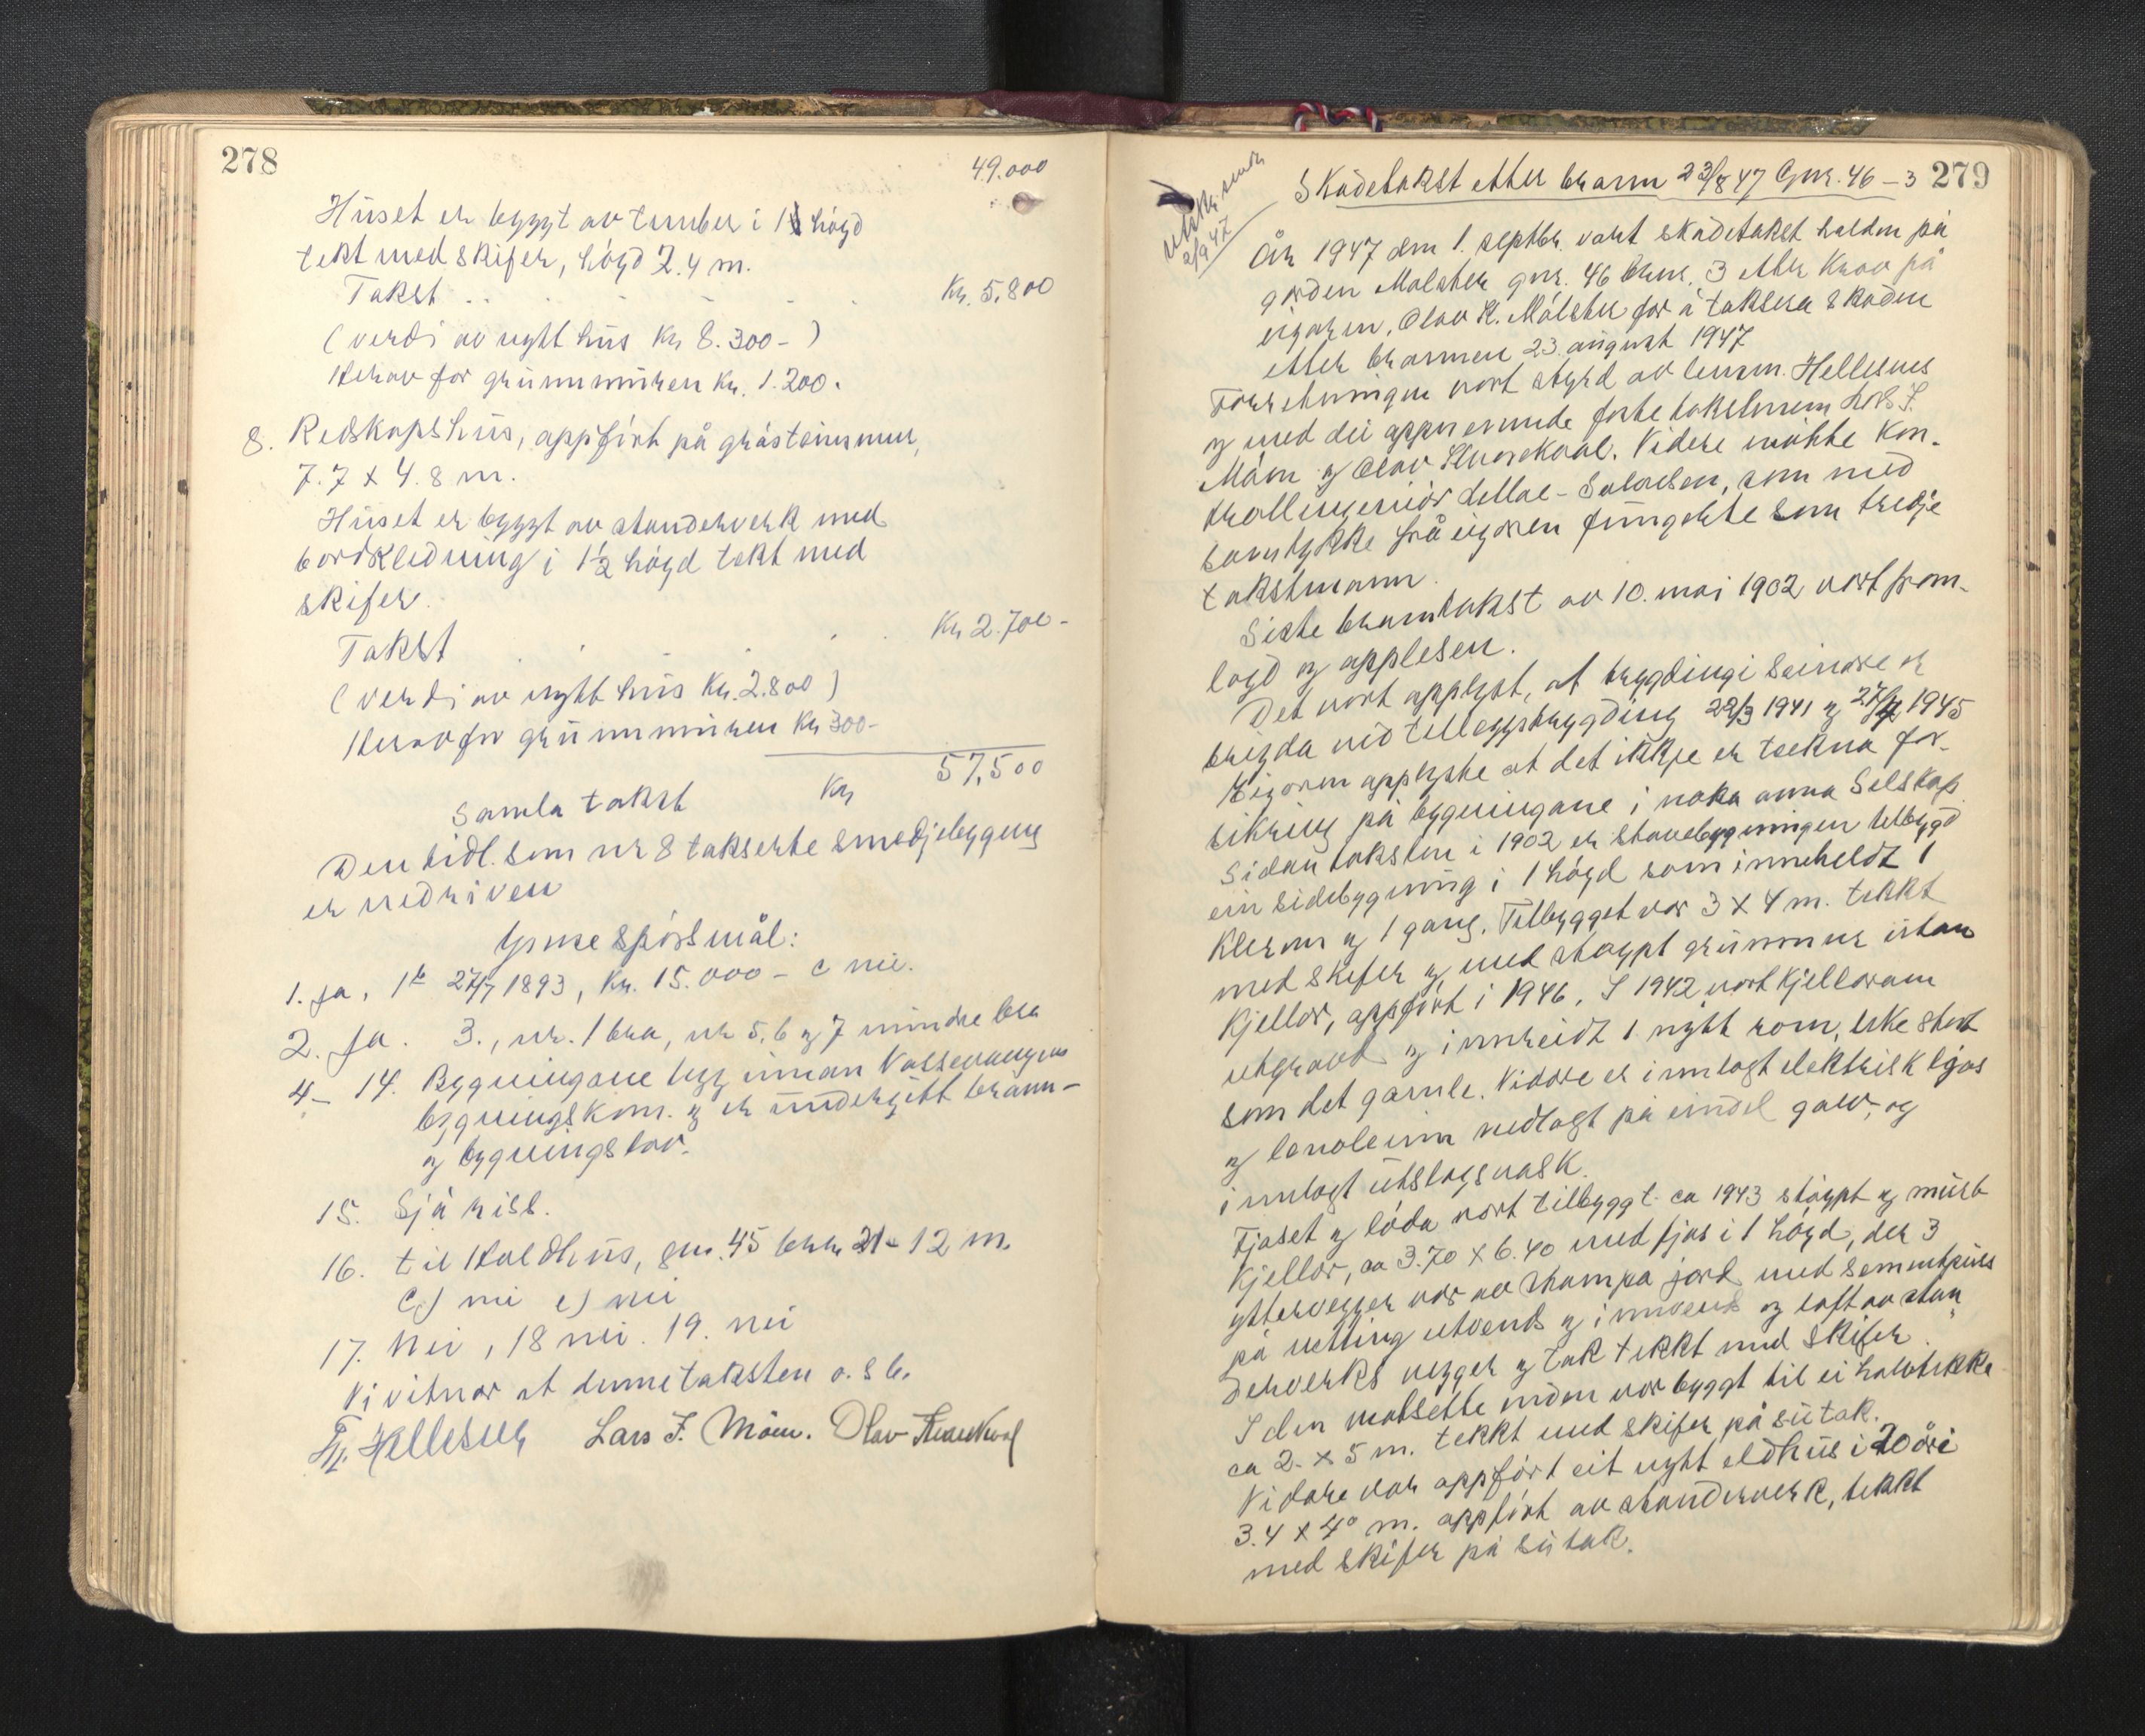 278
49.000
Huset er bygt av tømber i 1 høgd
tekt med skifer, høgd 2.4 m.
Takst Kr. 5.800
(verdi av nytt hus Kr 8.300-)
Herav for grunnmuren Kr. 1.200.
8. Redskapshus, oppført på gråsteinsmur,
7.7 x 4.8 m.
Huset er bygt av standerverk med
bordkledning i 1½ høgd tekt med
skifer.
Takst Kr 2.700-
(verdi av nytt hus Kr. 2.800)
Herav for grunnmuren Kr 300-
Samla takst Kr 57,500
Den tidl. som nr 8 takserte smedjebygning
er nedriven
Ymse spørsmål:
1. Ja, 1893, Kr. 15.000- c nei.
2. Ja. 3., nr. 1 bra, nr 5, 6 og 7 mindre bra
4- 14. Bygningane ligg innan Vossevangen
bygningskom. og er undergitt brann-
og bygningslov.
15. Sjå riss.
16. til Haldhus, gnr. 45 brnr 21- 12 m.
c) nei e) nei
17. Nei, 18 nei. 19. nei
Vi vitnar at denne taksten o.s b.
Hellesnes Lars J. Møen. Olav
Skadetakst etter brann 23/8 47 Gnr. 46 - 3 279
2/9 47
År 1947 den 1. septbr. vart skadetakst halden på
garden Mølster gnr. 46 brnr. 3 etter krav på
eigaren, Olav K. Mølster for å taksera skaden
etter brannen 23. august 1947
Forretningen vart styrd av lensm. Hellesnes
og med dei oppnemnde faste takstmenn Lars J.
Møen og Olav. Videre møtte kon-
trollingeniør, som med
samtykke frå eigaren fungerte som tredje
takstmann.
Siste branntakst av 10. mai 1902 vart fram-
lagd og opplesen.
Det vart opplyst, at trygdingi seinare er
brigda ved tilleggstrygding 22/3 1941 og 1945
Eigaren opplyste at det ikkje er teekna for-
sikring på bygningane i noka anna Selskap
Sidan taksten i 1902 er stovebygningen tilbygd
ein sidebygning i 1 høgd som inneheldt 1
Klerom og 1 gang. Tilbygget var 3 x 4 m. tekkt
med skifer og med støypt grunnmur utan
Kjellar, oppført i 1946. I 1942 vart kjellaren
utgravd og innreidt 1 nytt rom, like stort
som det gamle. Vidare er innlagt elektrisk ljos
og lenoleum nedlagt på eindel golv, og
innlagt utslagsvask.
Fjøset og løda vart tilbyggt ca 1943 støypt og murt
Kjellar, ca 3.70 x 6.40 med fjøs i 1 høgd, der 3
yttervegger var av stampa jord med sementpuss
på netting utvendt og innvendt og loft av stan
derverks vegger og tak tekkt med skifer.
I den motsette enden var byggt til ei halvtekke
ca 2. x 5 m. tekkt med skifer på sutak.
Vidare var oppført eit nytt eldhus i 20 åri
3.4 x 4° m. oppført av standerverk, tekkt
med skifer på sutak.